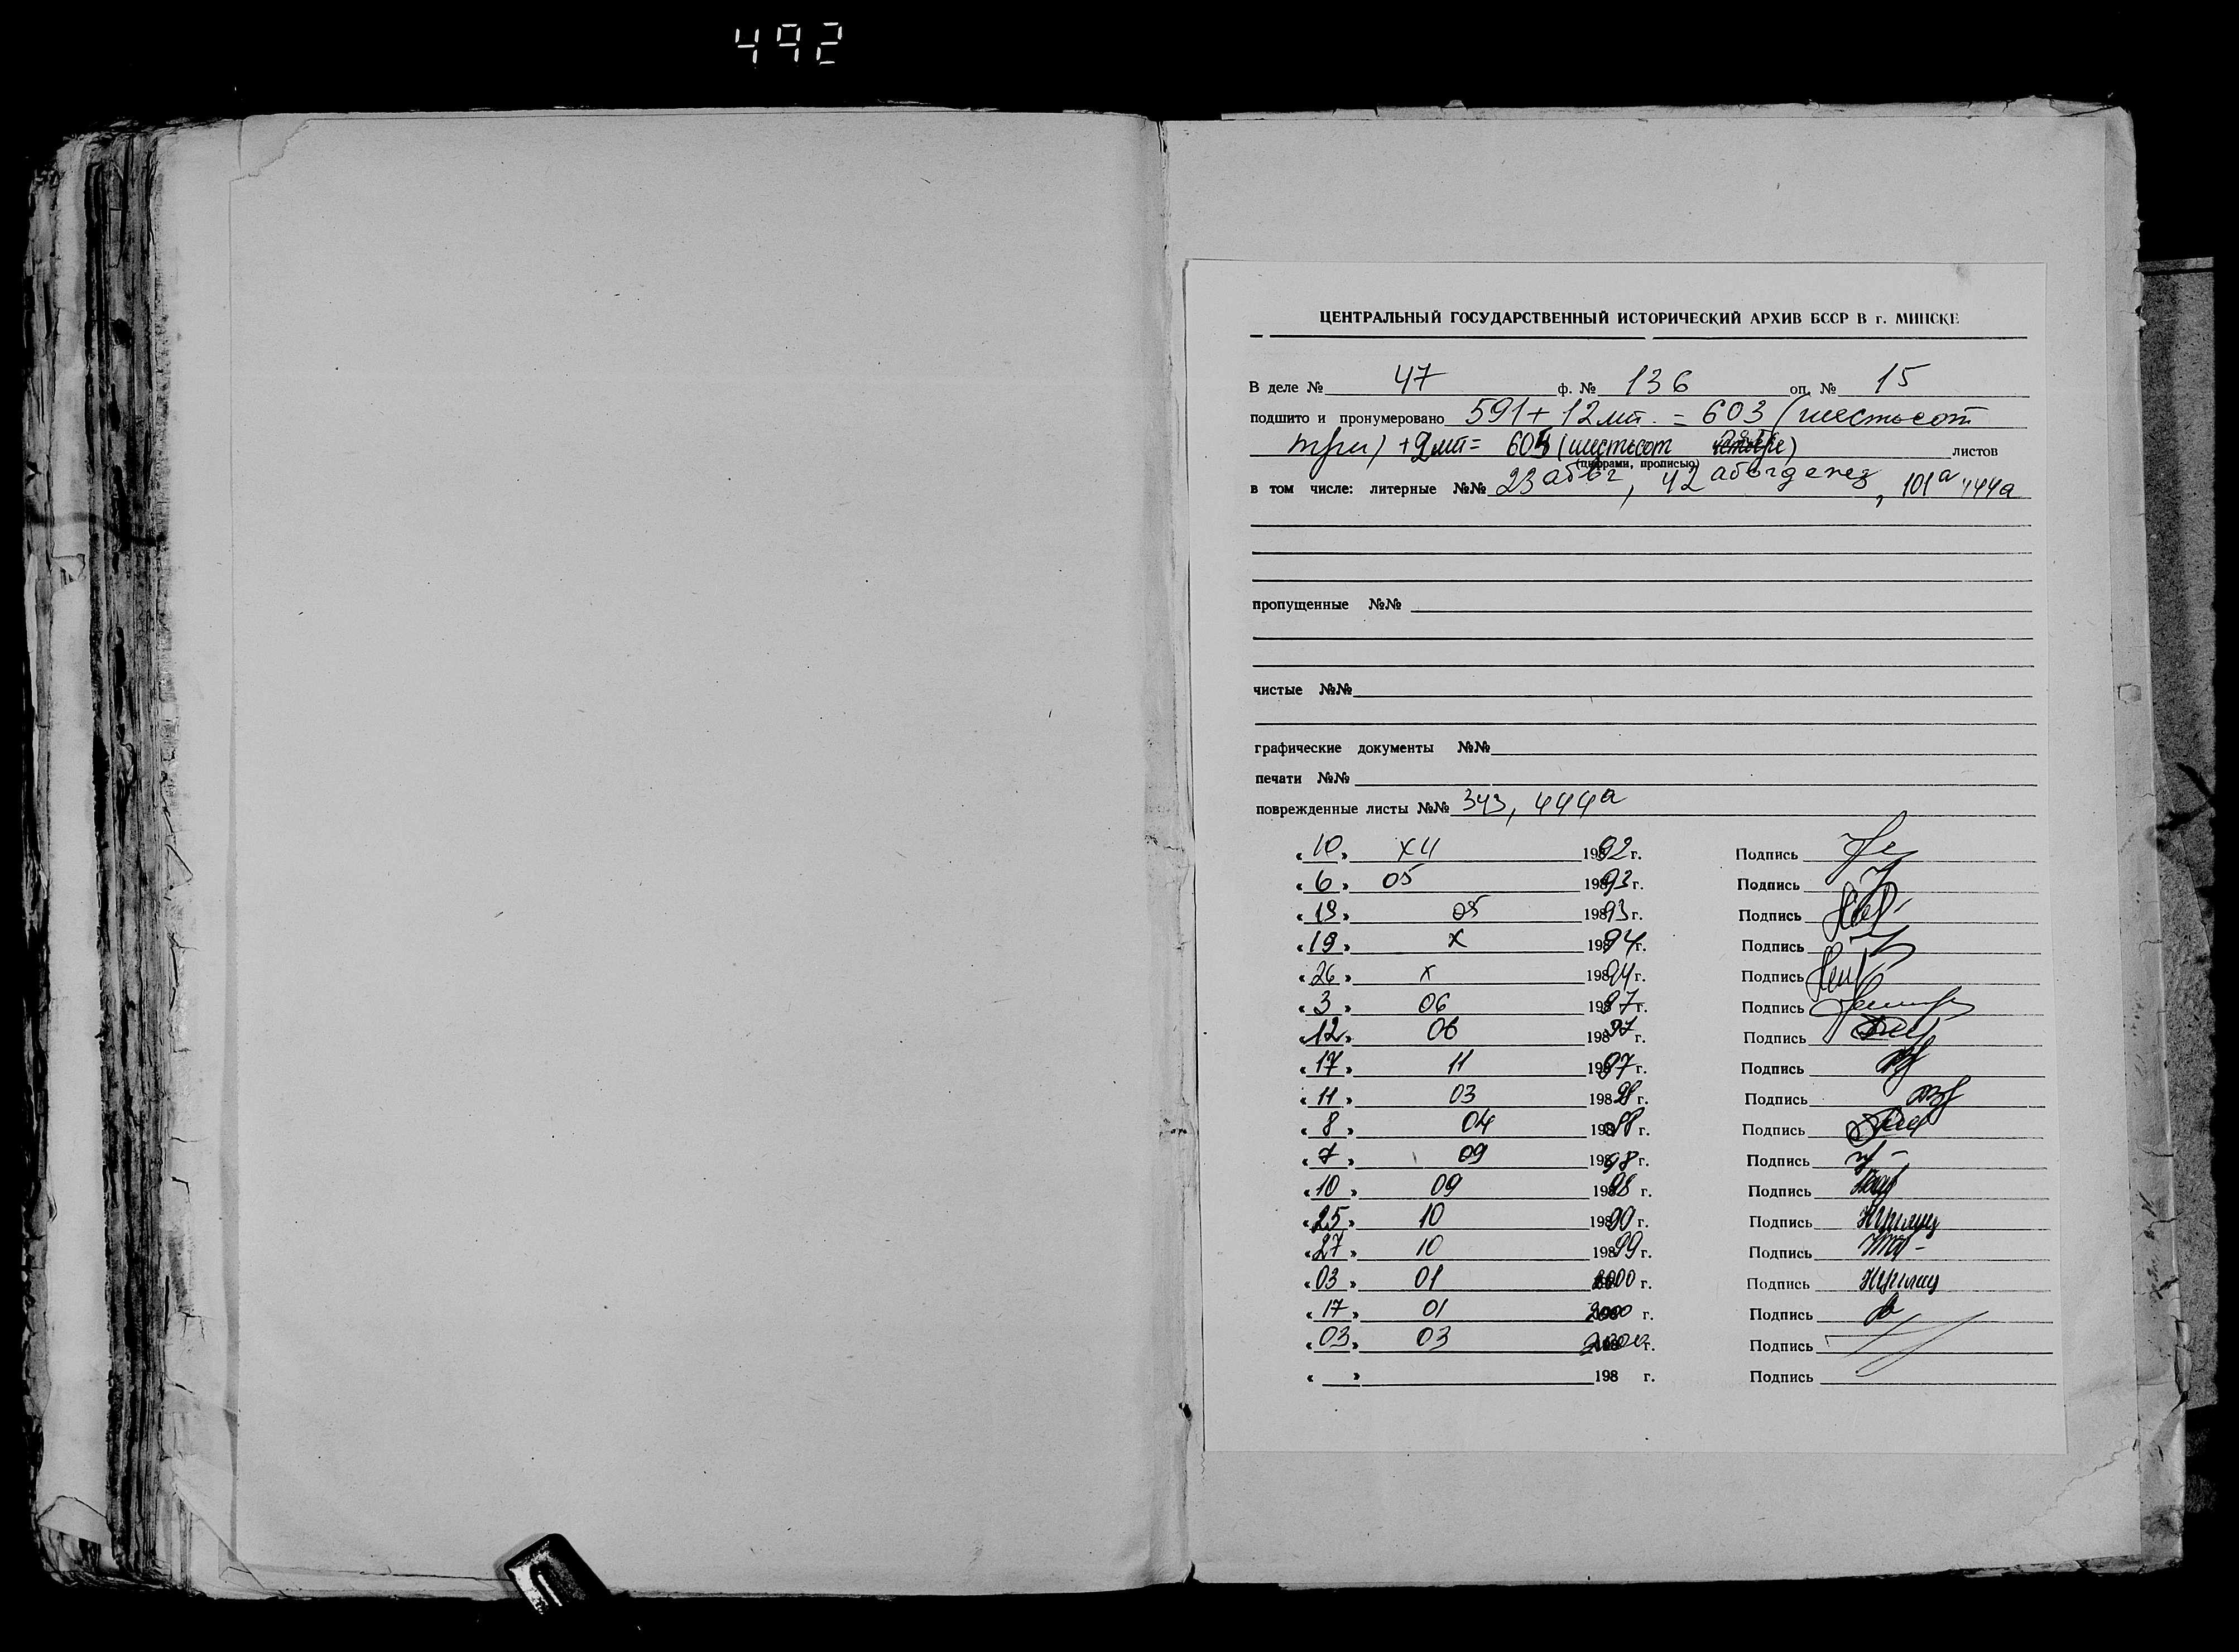 492
ЦЕНТРАЛЬНЫЙ ГОСУДАРСТВЕННЫЙ ИСТОРИЧЕСКИЙ АРХИВ БССР В г. МИНСКЕ
В деле № 47 ф. № 136 оп. № 15
подшито и пронумеровано 591 + 12 лит. = 603 (шестьсот
три) + 2 лит = 605 (шестьсот листов
(цифрами, прописью)
в том числе: литерные №№ 23абвг, 42абвгдежз, 101а 444а
пропущенные №№
чистые №№
графические документы №№
печати №№
поврежденные листы №№ 343, 444а
«10» XII 1992 г. Подпись
«6» 05 1993 г. Подпись
«19» 05 1993 г. Подпись
«19» X 1994 г. Подпись
«26» X 1994 г. Подпись
«3» 06 1997 г. Подпись
«12» 06 1997 г. Подпись
«17» 11 1997 г. Подпись
«11» 03 1998 г. Подпись
«8» 04 1998 г. Подпись
«7» 09 1998 г. Подпись
«10» 09 1998 г. Подпись
«25» 10 1999 г. Подпись
«27» 10 1999 г. Подпись
«03» 01 2000 г. Подпись
«17» 01 2000 г. Подпись
«03» 03 2000 г. Подпись
« » 198 г. Подпись